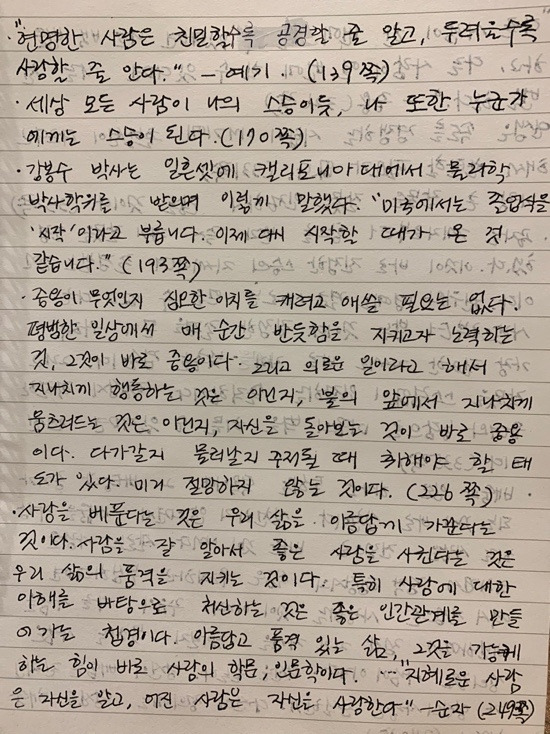 · "현명한 사람은 친밀할수록 공경할 줄 알고, 두려울수록
사랑할 줄 안다." - 예기. (139쪽)
· 세상 모든 사람이 나의 스승이듯, 나 또한 누군가
에게는 스승이 된다. (170쪽)
· 강봉수 박사는 일흔셋에 캘리포니아대에서 물리학
박사학위를 받으며 이렇게 말했다. "미국에서는 졸업식을
'시작'이라고 부릅니다. 이제 다시 시작할 때가 온 것
같습니다." (193쪽)
· 중용이 무엇인지 심오한 이치를 캐려고 애쓸 필요는 없다.
평범한 일상에서 매 순간 반듯함을 지키고자 노력하는
것, 그것이 바로 중용이다. 그리고 의로운 일이라고 해서
지나치게 행동하는 것은 아닌지, 불의 앞에서 지나치게
움츠러드는 것은 아닌지, 자신을 돌아보는 것이 바로 중용
이다. 다가갈지 물러날지 주저될 때 취해야 할 태
도가 있다. 미리 절망하지 않는 것이다. (226쪽)
· 사랑을 베푼다는 것은 우리 삶을 아름답게 가꾼다는
것이다. 사람을 잘 알아서 좋은 사람을 사귄다는 것은
우리 삶의 품격을 지키는 것이다. 특히 사랑에 대한
이해를 바탕으로 처신하는 것은 좋은 인간관계를 만들
어가는 첩경이다. 아름답고 품격 있는 삶, 그것을 가능케
하는 힘이 바로 사람의 학문, 인문학이다. … "지혜로운 사람
은 자신을 알고, 어진 사람은 자신을 사랑한다" - 순자 (249쪽)